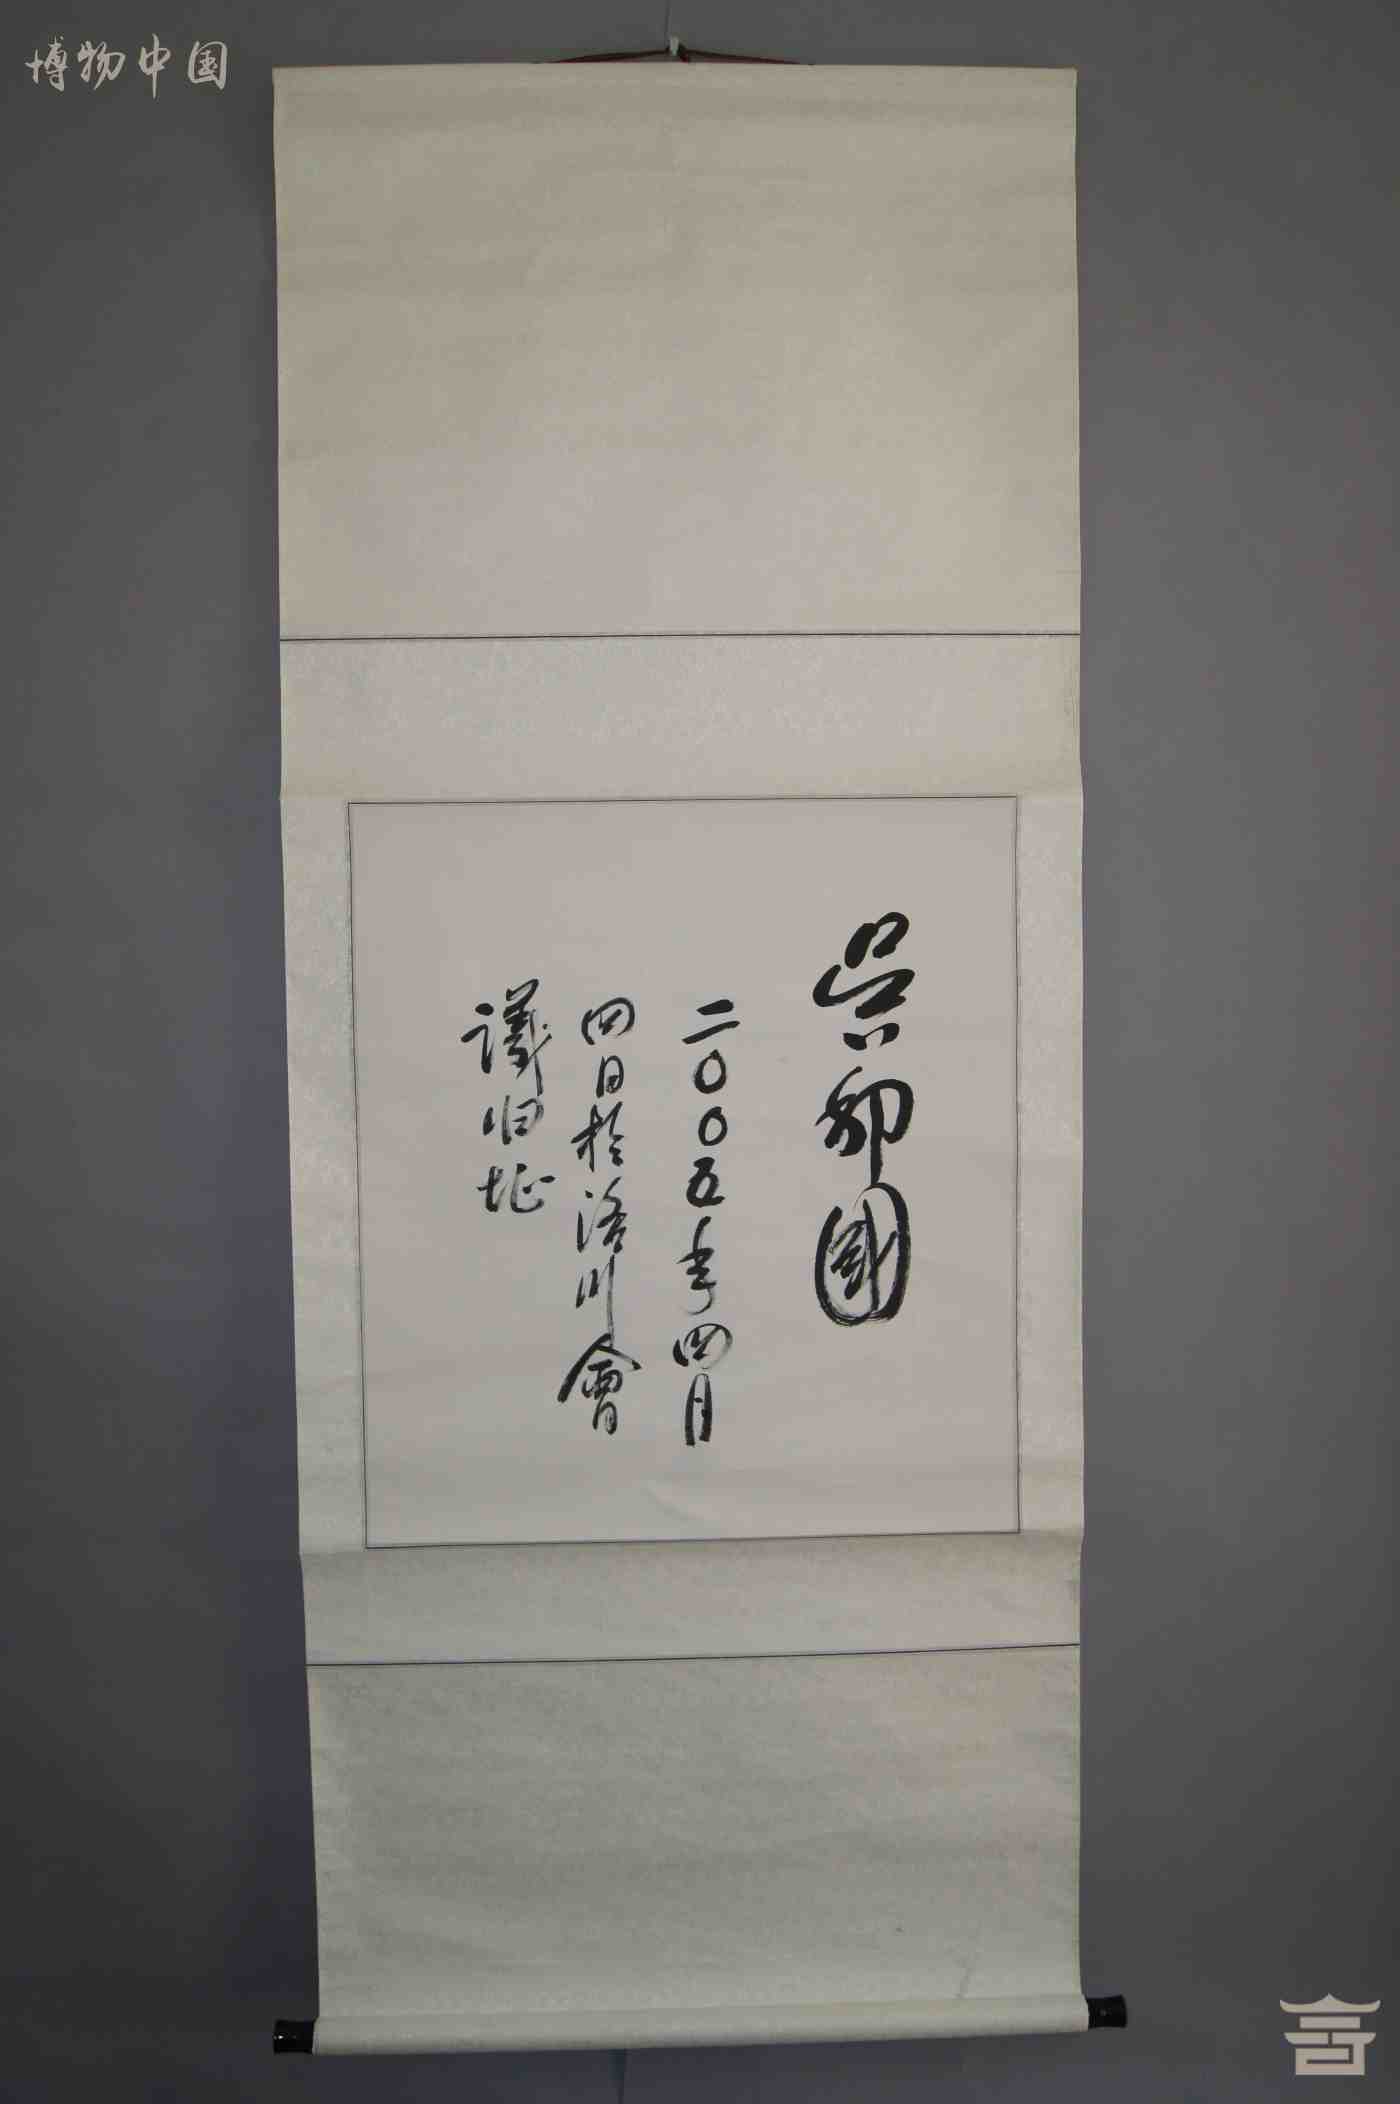 博物中国
吴邦國
二〇〇五年四月
四日於洛川會
議旧址